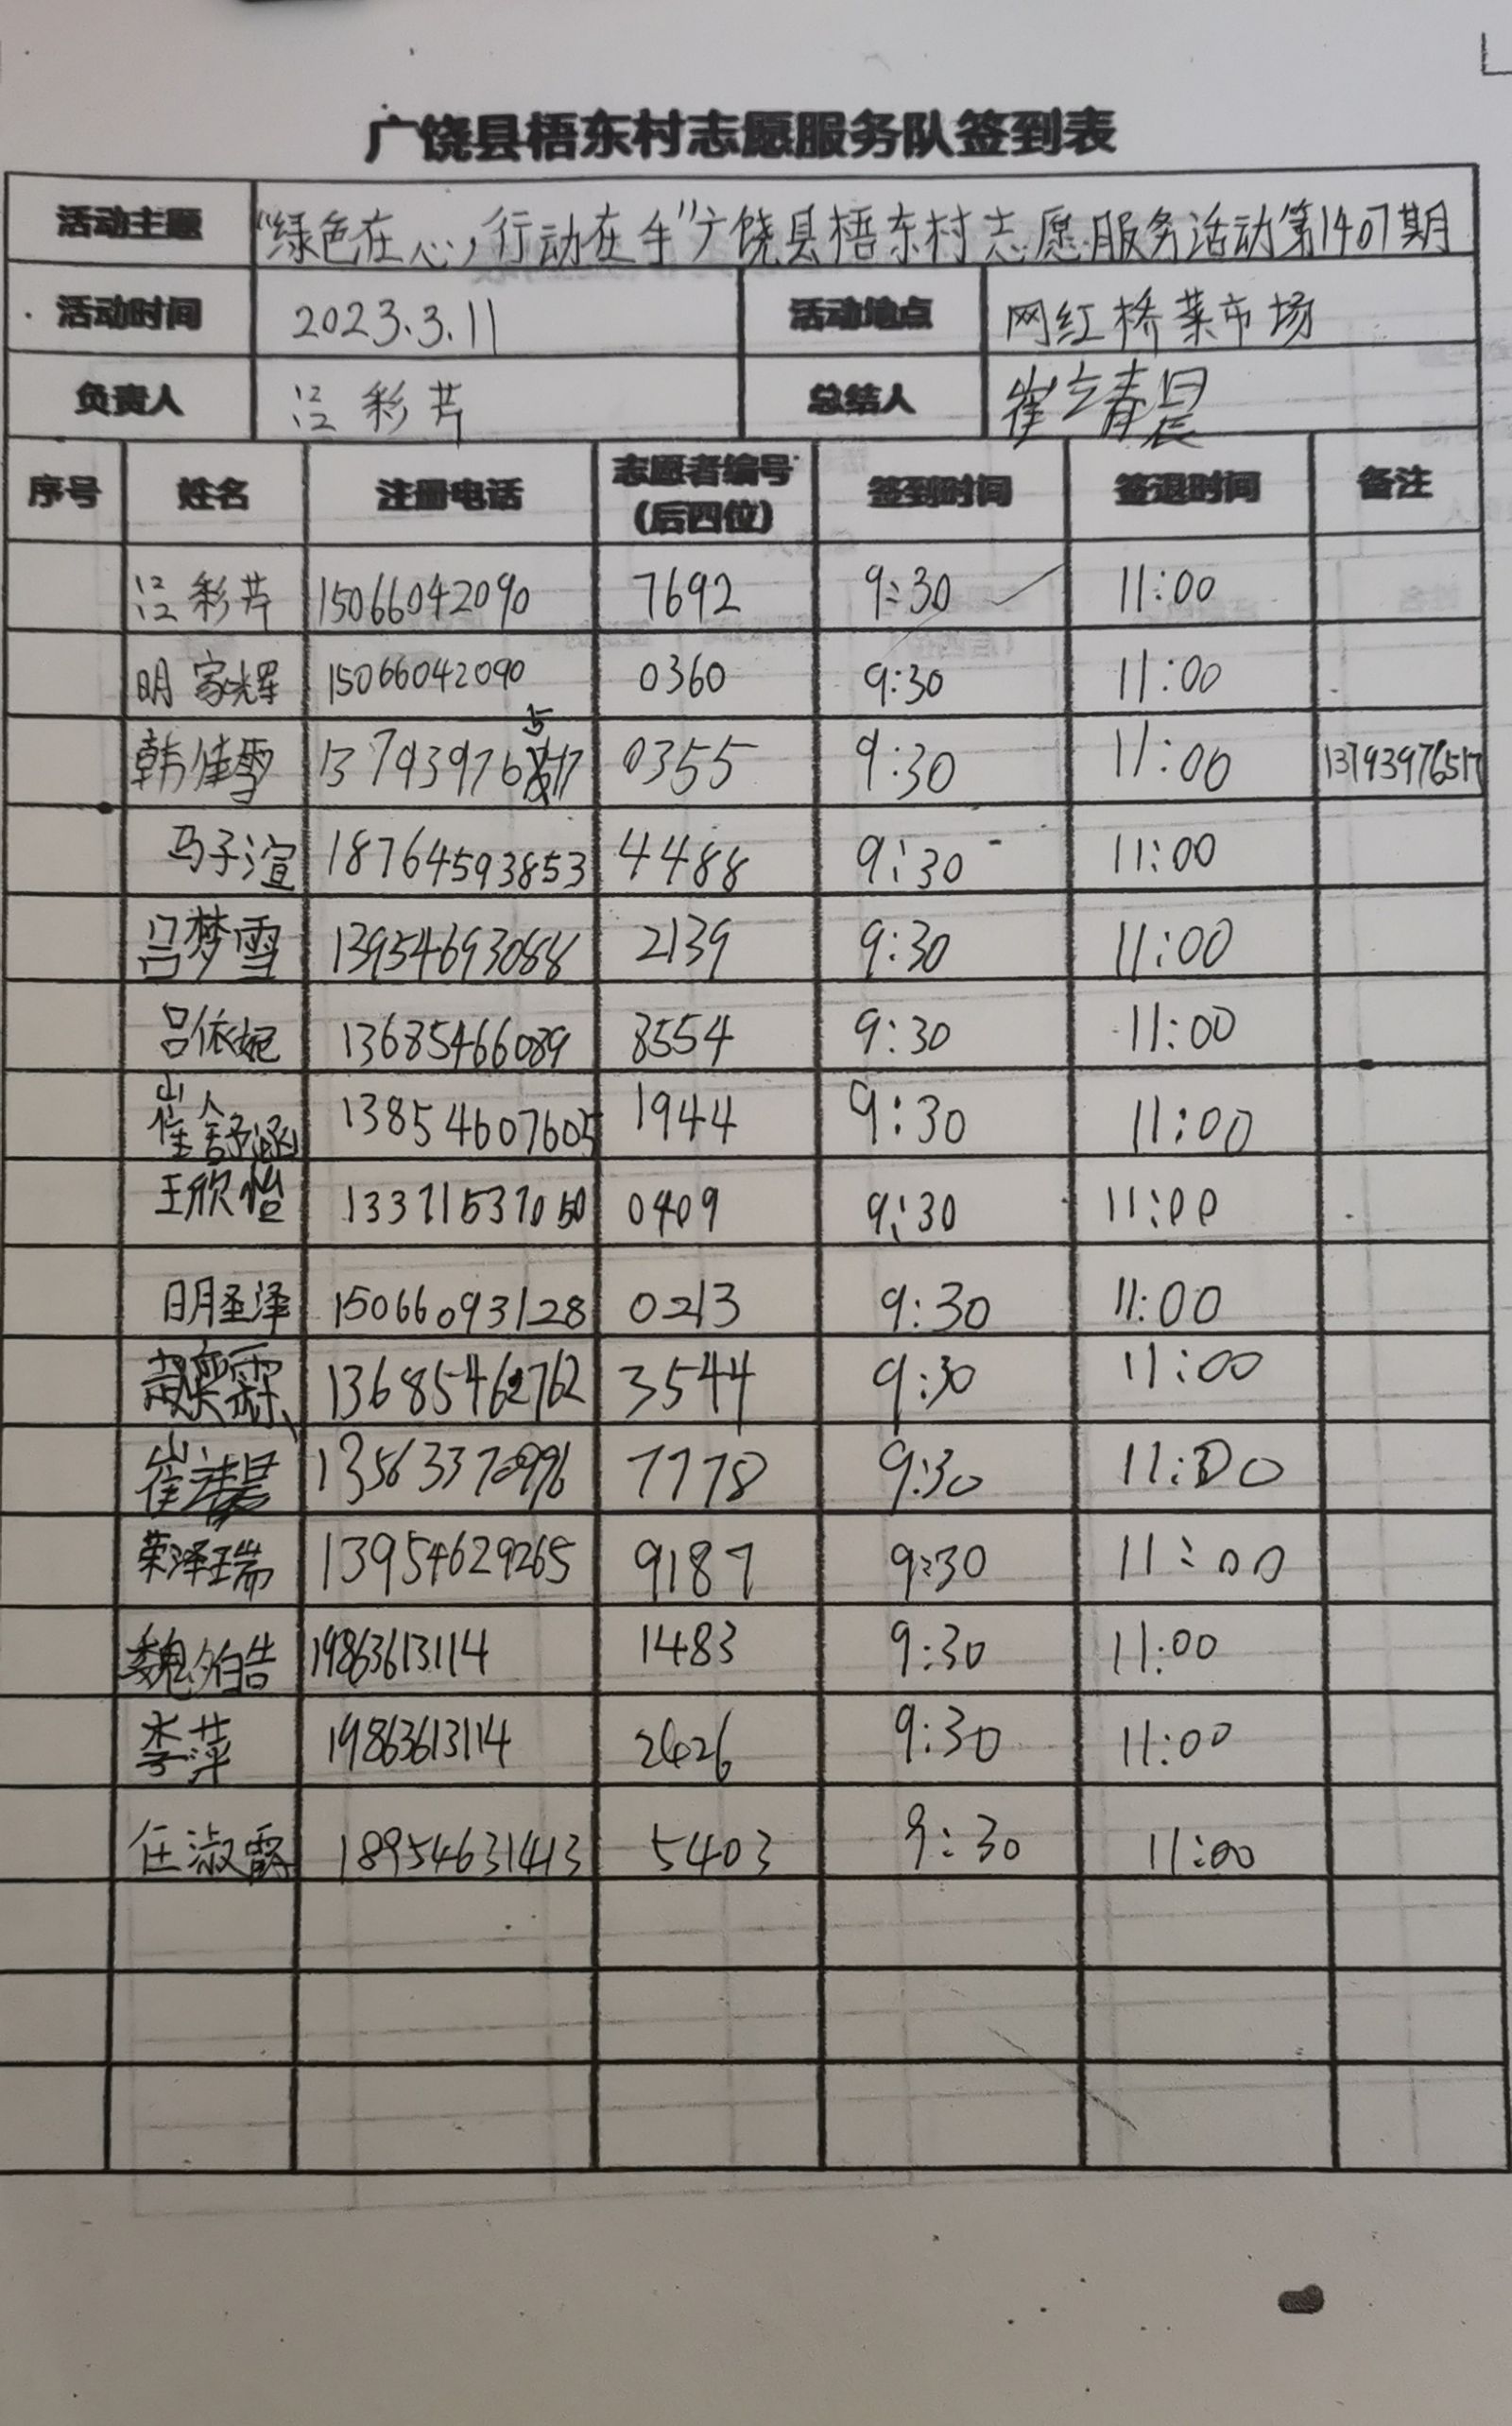 广饶县梧东村志愿服务队签到表
活动主题 “绿色在心,行动在手”广饶县梧东村志愿服务活动第1407期
活动时间 2023.3.11 活动地点 网红桥菜市场
负责人 彩芹 总结人 崔靖晨
序号 姓名 注册电话 志愿者编号(后四位) 签到时间 签退时间 备注
彩芹 15066042090 7692 9:30 11:00
明家辉 15066042090 0360 9:30 11:00
韩佳雪 13793976517 0355 9:30 11:00 13793976517
马子渲 18764593853 4488 9:30 11:00
吕梦雪 13954693088 2139 9:30 11:00
吕依妮 13685466089 8554 9:30 11:00
崔舒涵 13854607605 1944 9:30 11:00
王欣怡 13371537050 0409 9:30 11:00
明圣泽 15066093128 0213 9:30 11:00
13685462762 3544 9:30 11:00
崔靖晨 13563370996 7778 9:30 11:00
荣泽瑞 13954629265 9187 9:30 11:00
魏 19863613114 1483 9:30 11:00
李萍 19863613114 2626 9:30 11:00
任淑霞 18954631413 5403 9:30 11:00